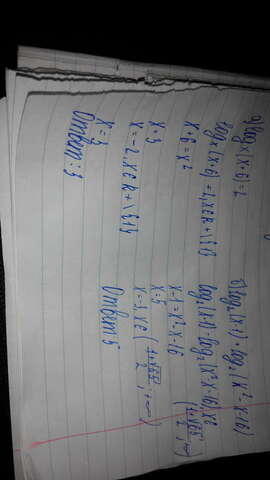 а) log_x(x+6)=2
log_x(x+6)=2, x∈R+\{1}
x+6=x²
x=3
x=-2, x∈R+\{1}
x=3
Ответ: 3
б) log₂(x-1)=log₂(x²-x-16)
log₂(x-1)=log₂(x²-x-16), x∈(1+√65/2; +∞)
x-1=x²-x-16
x=5
x=-3, x∈(1+√65/2; +∞)
Ответ 5